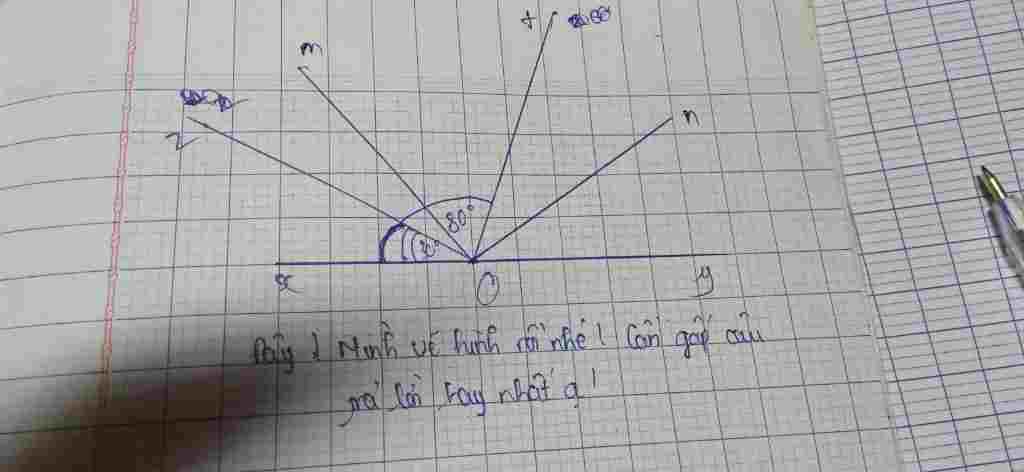 m
t
n
z
80°
x
O
y
Đây! Mình vẽ hình rồi nhé! Cần gấp câu
trả lời hay nhất ạ!